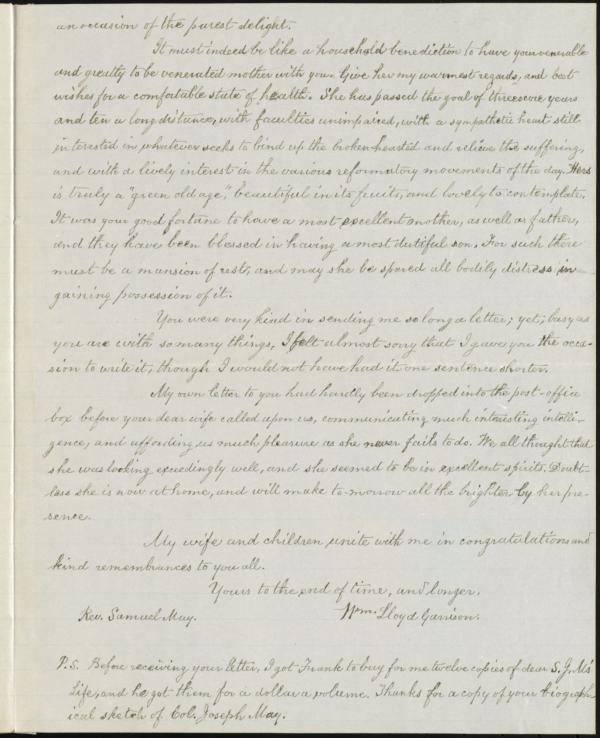 an occasion of the purest delight.
It must indeed be like a household benediction to have your venerable
and greatly to be venerated mother with you. Give her my warmest regards, and best
wishes for a comfortable state of health. She has passed the goal of threescore years
and ten a long distance, with faculties unimpaired, with a sympathetic heart still
interested in whatever seeks to bind up the broken-hearted and relieve the suffering,
and with a lively interest in the various reformatory movements of the day. Hers
is truly a "green old age," beautiful in its fruits, and lovely to contemplate.
It was your good fortune to have a most excellent mother, as well as father,
and they have been blessed in having a most dutiful son. For such there
must be a mansion of rest, and may she be spared all bodily distress in
gaining possession of it.
You were very kind in sending me so long a letter; yet, busy as
you are with so many things, I felt almost sorry that I gave you the occa-
sion to write it, though I would not have had it one sentence shorter.
My own letter to you had hardly been dropped into the post-office
box before your dear wife called upon us, communicating much interesting intelli-
gence, and affording us much pleasure as she never fails to do. We all thought that
she was looking exceedingly well, and she seemed to be in excellent spirits. Doubt-
less she is now at home, and will make to-morrow all the brighter by her pre-
sence.
My wife and children unite with me in congratulations and
kind remembrances to you all.
Yours to the end of time, and longer,
Rev. Samuel May. Wm. Lloyd Garrison.
P.S. Before receiving your letter, I got Frank to buy for me twelve copies of dear S. J. M's
Life, and he got them for a dollar a volume. Thanks for a copy of your biograph-
ical sketch of Col. Joseph May.